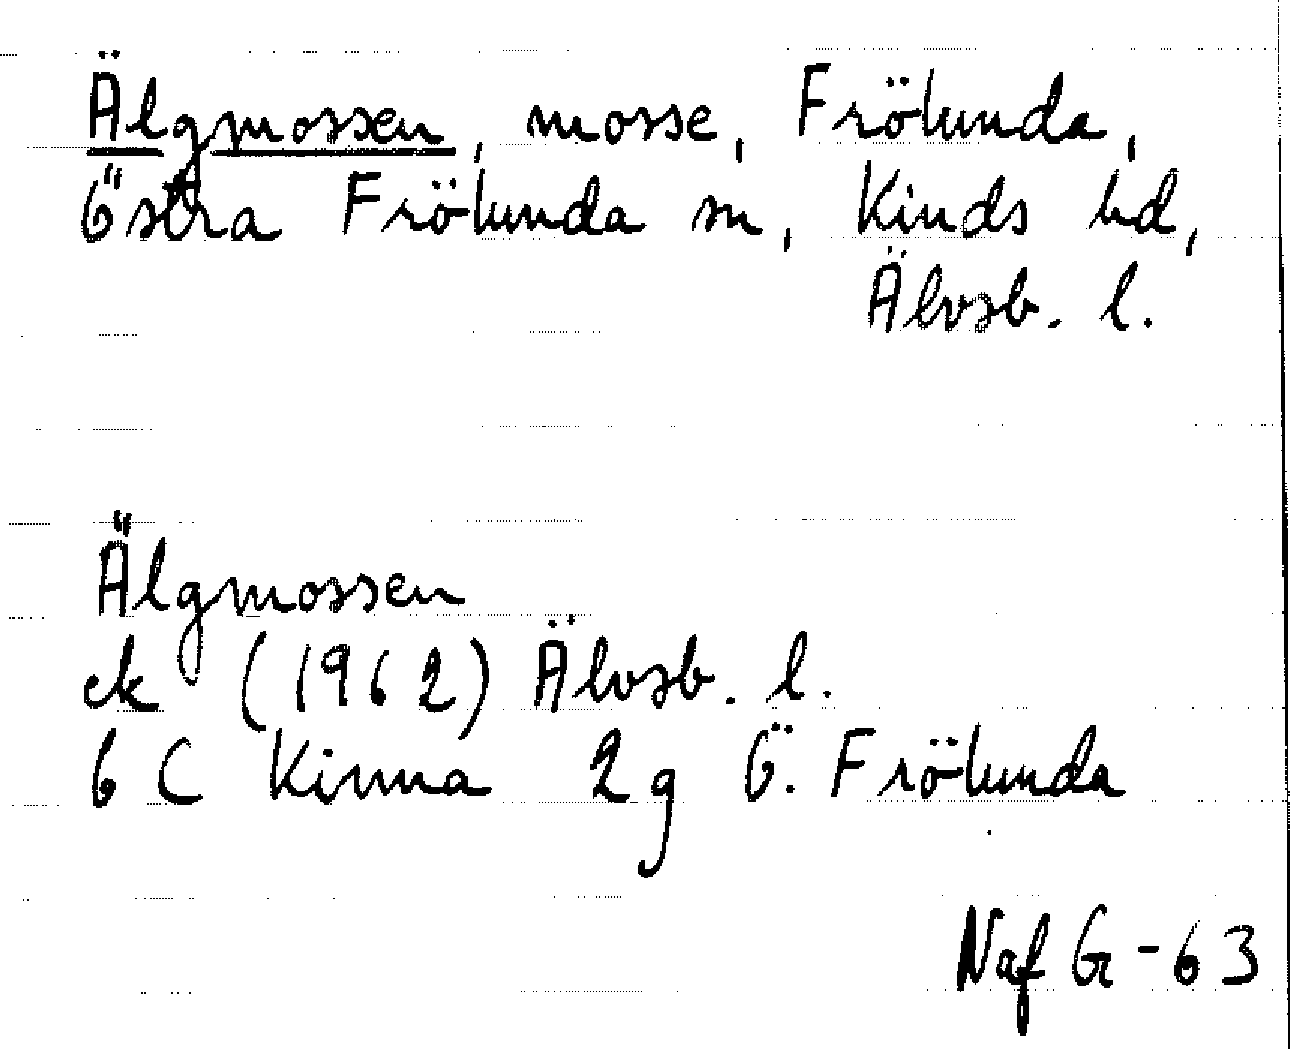 Älgmossen, mosse, Frölunda,
Östra Frölunda sn, Kinds hd,
Älvsb. l.
Älgmossen
ek (1962) Älvsb. l.
6 C Kinna 2g Ö. Frölunda
Naf G-63